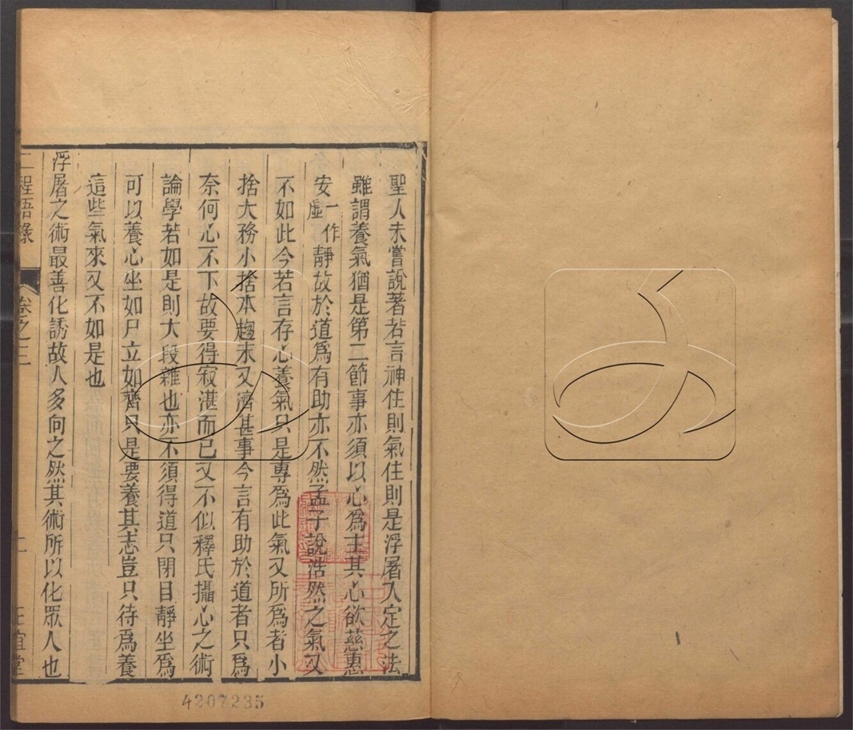 聖人未嘗說著若言神住則氣住則是浮屠入定之法
雖謂養氣猶是第二節事亦須以心爲主其心欲慈惠
安一作虛靜故於道爲有助亦不然孟子說浩然之氣又
不如此今若言存心養氣只是專爲此氣又所爲者小
捨大務小捨本趨末又濟甚事今言有助於道者只爲
奈何心不下故要得寂湛而已又不似釋氏攝心之術
論學若如是則大段雜也亦不須得道只閉目靜坐爲
可以養心坐如尸立如齊只是要養其志豈只待爲養
這些氣來又不如是也
浮屠之術最善化誘故人多向之然其術所以化眾人也
二程語錄
卷之三
正誼堂
4207235